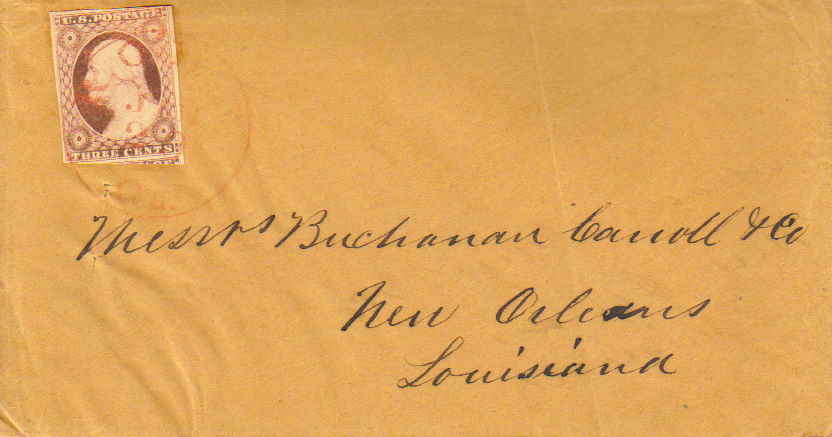 U.S. POSTAGE
THREE CENTS
Messrs Buchanan Carroll & Co
New Orleans
Louisiana